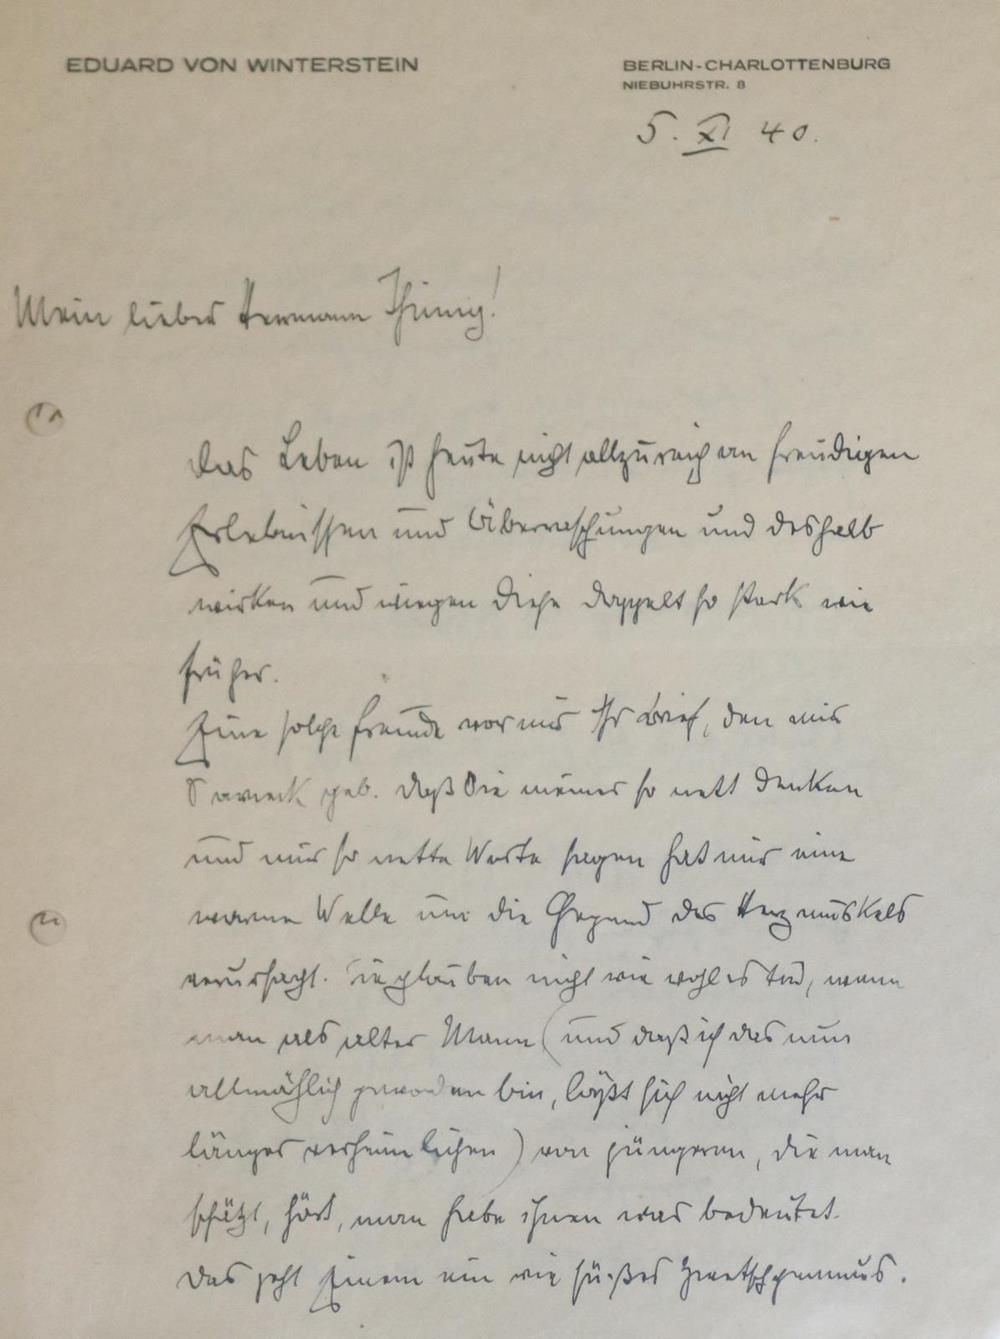 EDUARD VON WINTERSTEIN
BERLIN-CHARLOTTENBURG
NIEBUHRSTR. 8
5. XI 40.
Mein lieber Hermann Thimig!
Das Leben ist heute nicht allzureich an freudigen
Erlebnissen und Überraschungen und deshalb
wirken und wiegen diese doppelt so stark wie
früher.
Eine solche Freude war mir Ihr Brief, den mir
gab. Daß Sie meiner so nett denken
und mir so nette Worte sagen hat mir eine
warme Welle um die Gegend des Herzmuskels
verursacht. Sie glauben nicht wie wohl es tud, wenn
man als alter Mann (und daß ich das nun
allmählich geworden bin, läßt sich nicht mehr
länger verheimlichen) von jüngeren, die man
schätzt, hört, man habe ihnen was bedeutet.
Das geht Einem ein wie süßer